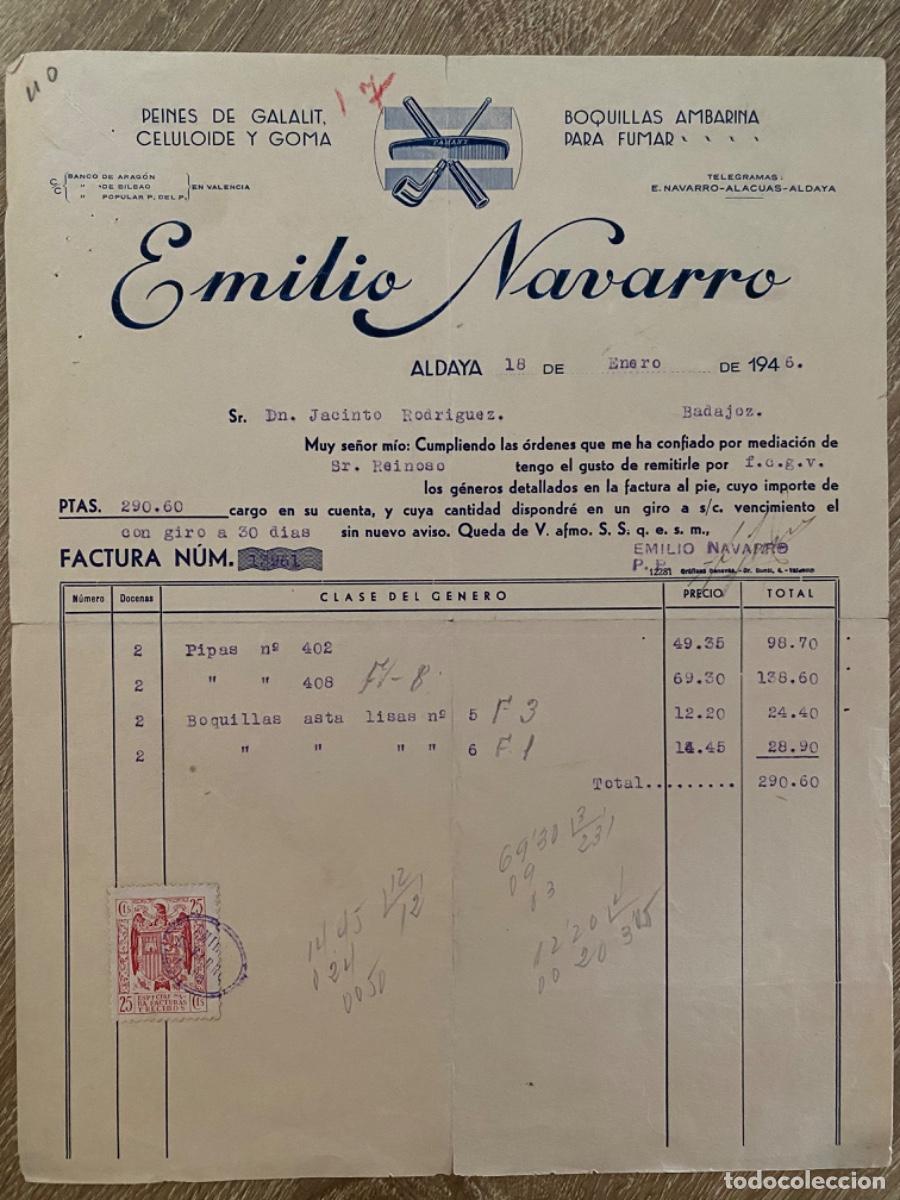 110
PEINES DE GALALIT,
CELULOIDE Y GOMA
1 7
BOQUILLAS AMBARINA
PARA FUMAR
C/C BANCO DE ARAGÓN
" DE BILBAO
" POPULAR P. DEL P.
EN VALENCIA
TELEGRAMAS:
E. NAVARRO-ALACUAS-ALDAYA
Emilio Navarro
ALDAYA 18 DE Enero DE 1946.
Sr. Dn. Jacinto Rodriguez. Badajoz.
Muy señor mío: Cumpliendo las órdenes que me ha confiado por mediación de
Sr. Reinoso tengo el gusto de remitirle por f.c.g.v.
los géneros detallados en la factura al pie, cuyo importe de
PTAS. 290.60 cargo en su cuenta, y cuya cantidad dispondré en un giro a s/c. vencimiento el
con giro a 30 dias sin nuevo aviso. Queda de V. afmo. S. S. q. e. s. m.,
EMILIO NAVARRO
P. P.
FACTURA NÚM. 13961
12281 Gráficas Genovés.-
Número Docenas CLASE DEL GENERO PRECIO TOTAL
2 Pipas nº 402 49.35 98.70
2 " " 408 F1-8 69.30 138.60
2 Boquillas asta lisas nº 5 F 3 12.20 24.40
2 " " " " 6 F.1 14.45 28.90
Total......... 290.60
69'30 3
09 231
03
14.45 12
024 12
0050
12'20
00 20
25 Cts
25 Cts
ESPECIAL PA-
RA FACTURAS
Y RECIBOS
todocoleccion